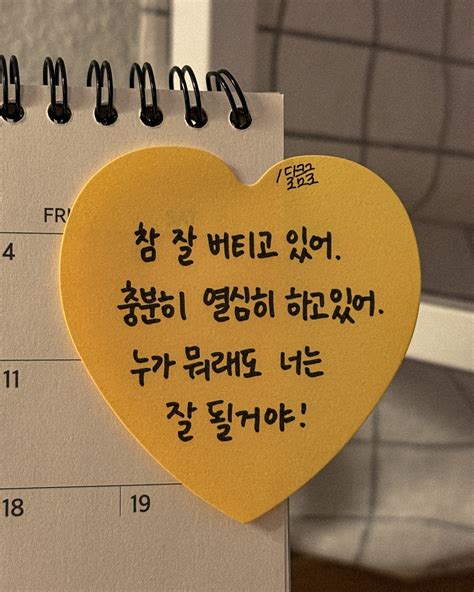 FRI
4
11
18
19
참 잘 버티고 있어.
충분히 열심히 하고있어.
누가 뭐래도 너는
잘 될거야!